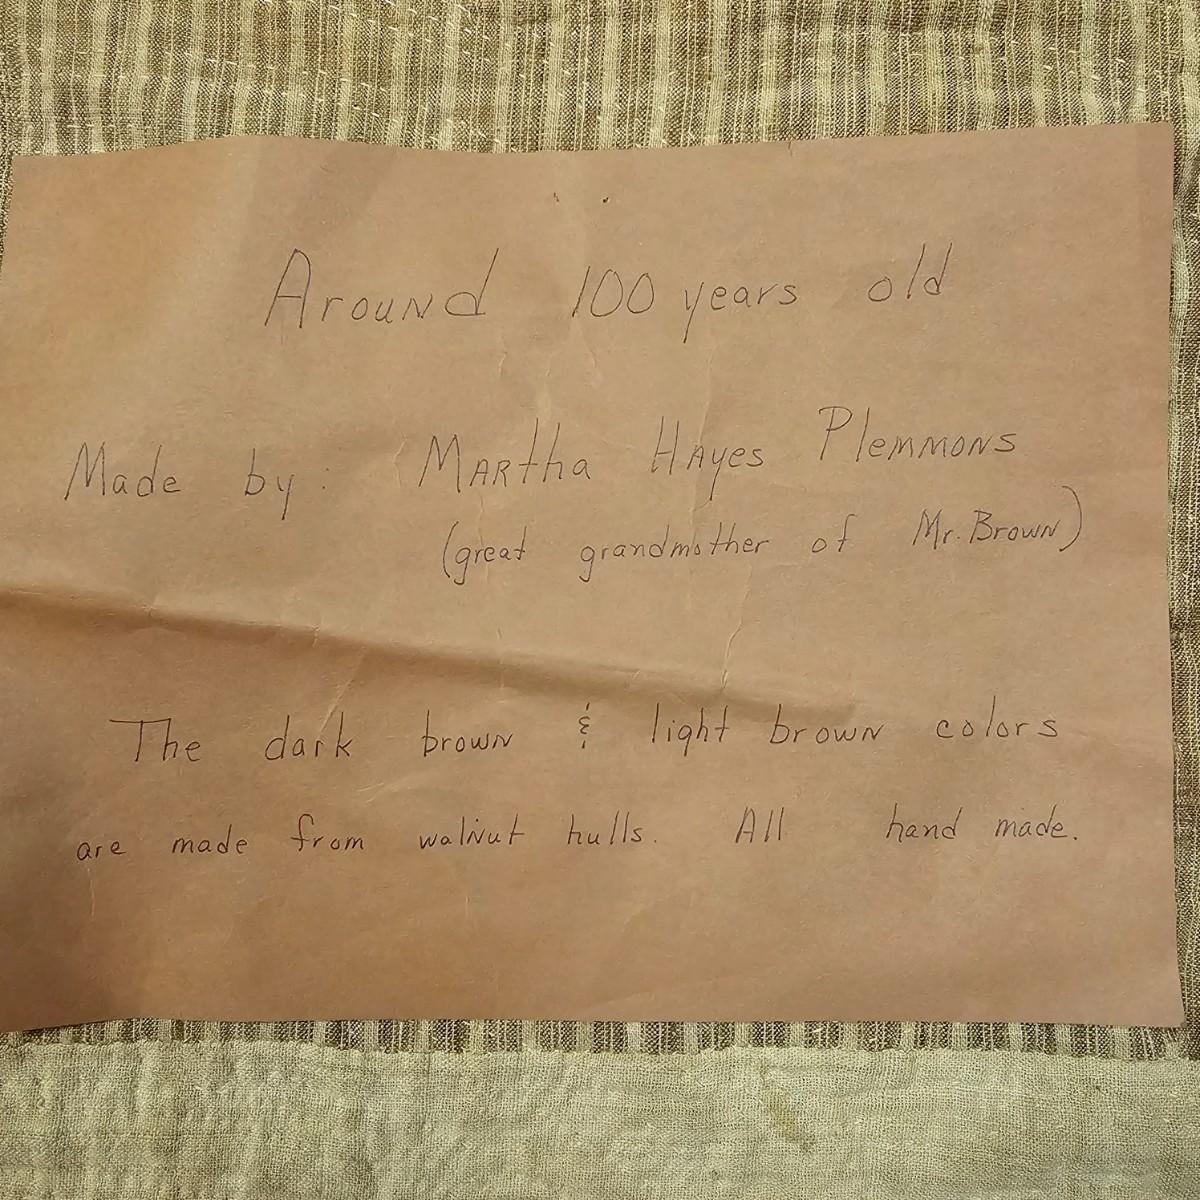 Around 100 years old
Made by: Martha Hayes Plemmons
(great grandmother of Mr. Brown)
The dark brown & light brown colors
are made from walnut hulls. All hand made.